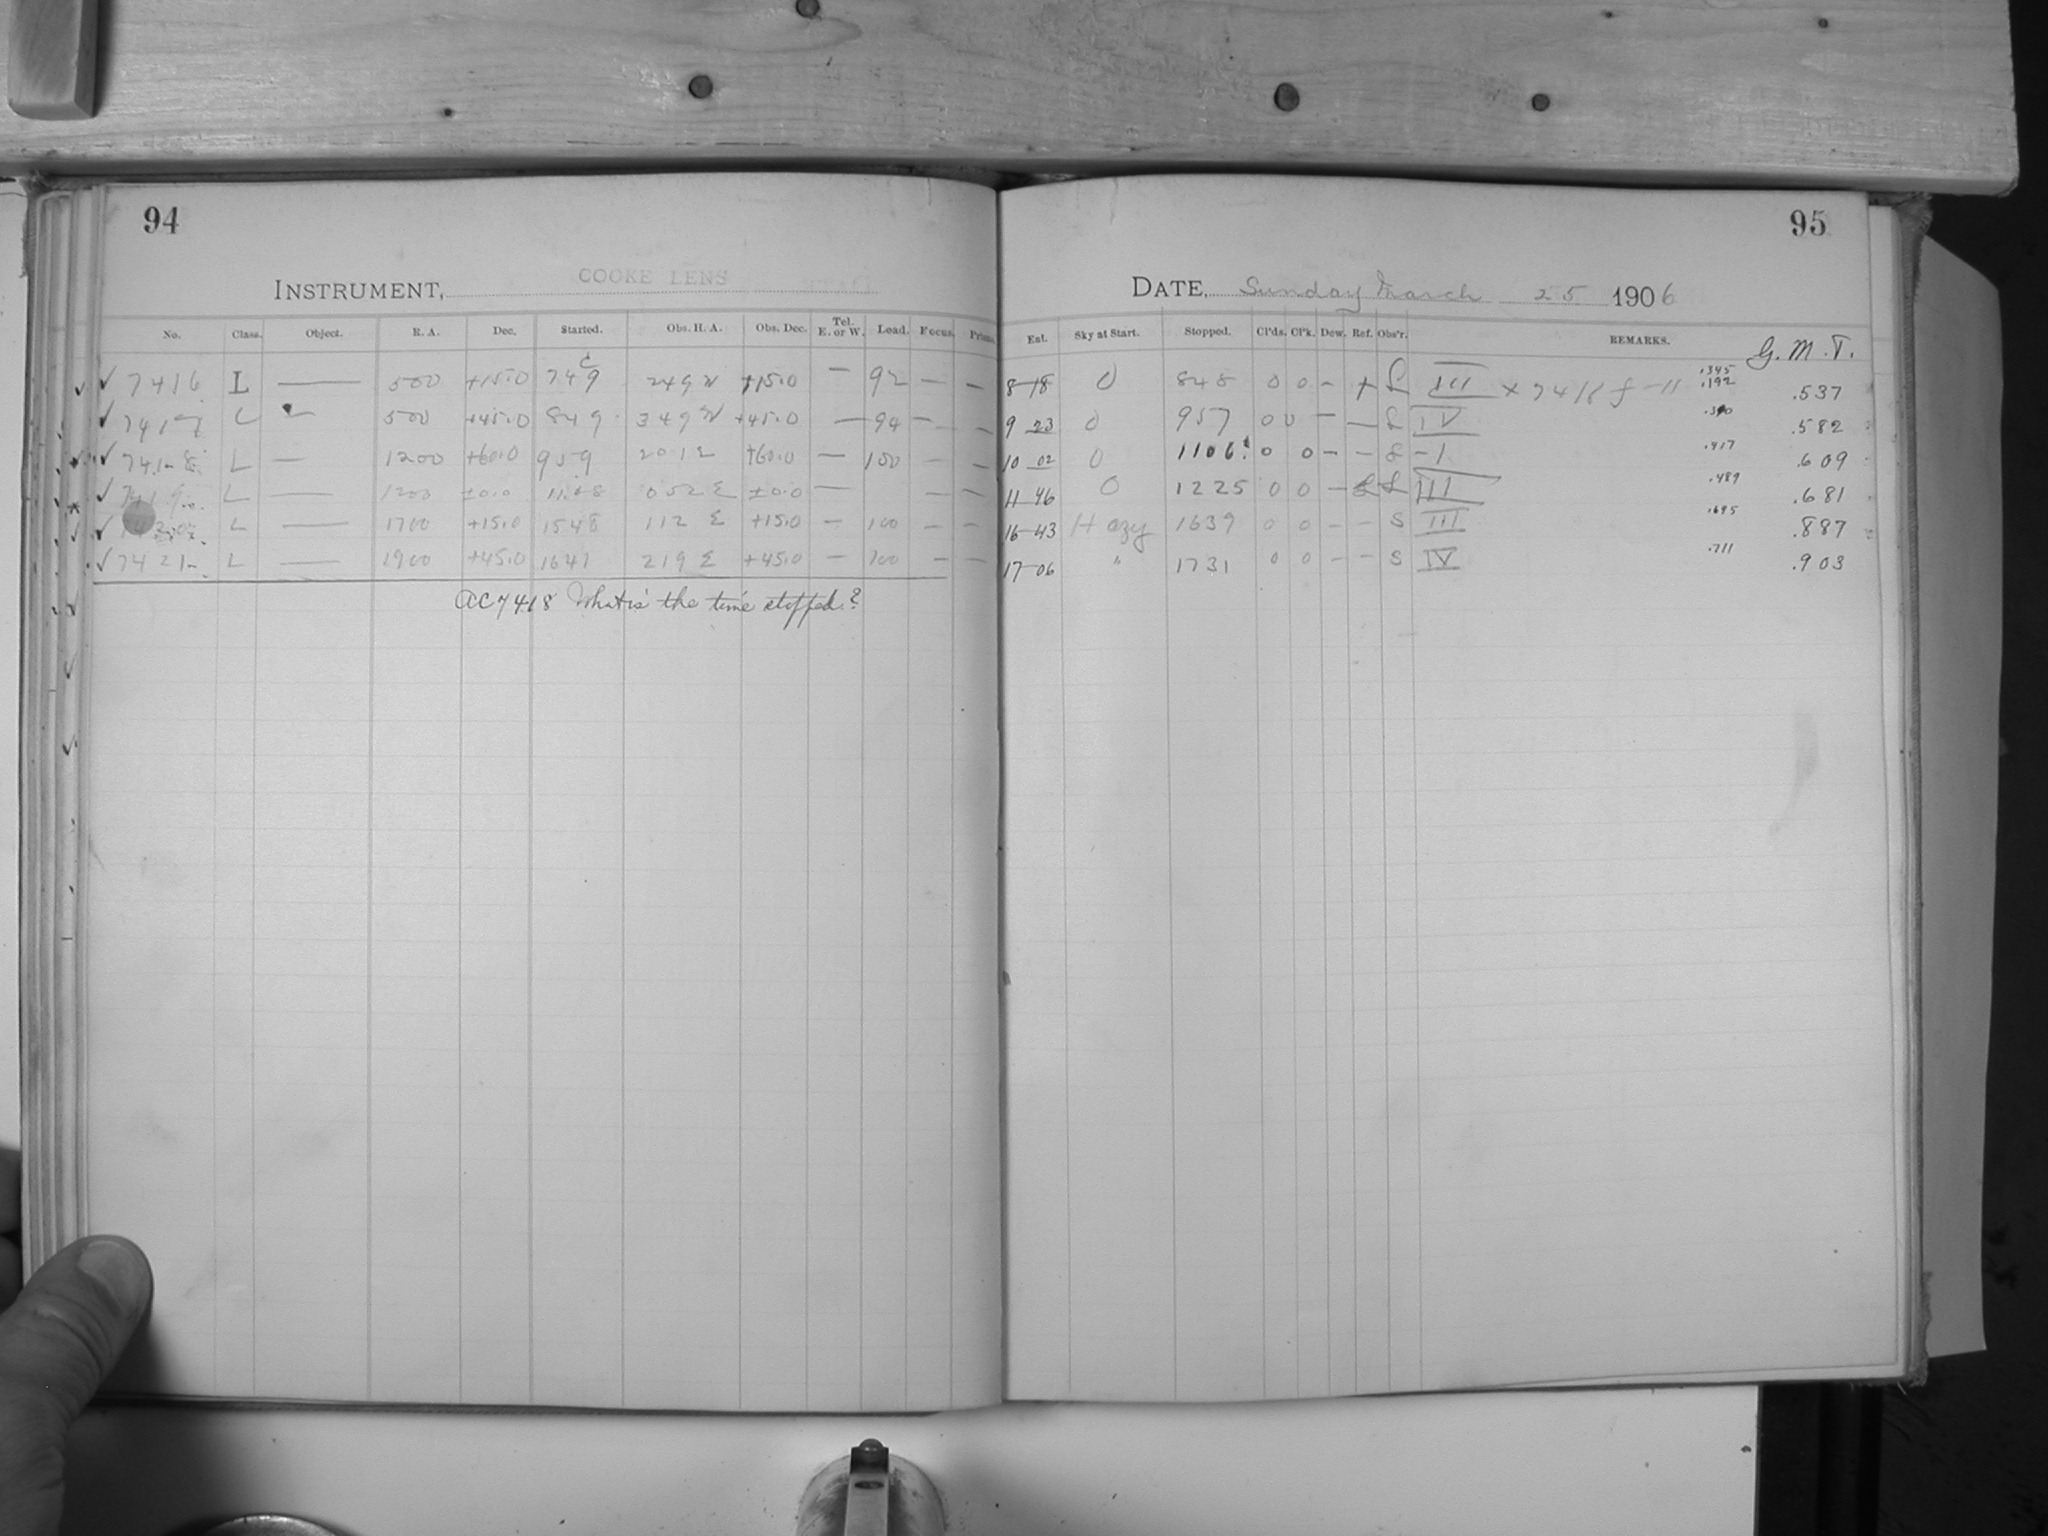 94
INSTRUMENT, COOKE LENS
No. Class. Object. R. A. Dec. Started. Obs. H. A. Obs. Dec. Tel. E. or W. Lead. Focus. Prisms
7416 L — 500 +15.0 749 249 W +15.0 — 92 — —
7417 L — 500 +45.0 849 349 W +45.0 — 94 — —
7418 L — 1200 +60.0 959 201 E +60.0 — 100 — —
7419 L — 1200 ±0.0 1108 052 E ±0.0 — — —
L — 1700 +15.0 1548 112 E +15.0 — 100 — —
7421 L — 1900 +45.0 1641 219 E +45.0 — 100 — —
AC 7418 What is the time stopped?
95
DATE, Sunday March 25 1906
Ent. Sky at Start. Stopped. Cl'ds. Cl'k. Dew. Ref. Obs'r. REMARKS. G. M. T.
8 18 0 848 0 0 – + III × 7418 .345 .192 .537
9 23 0 957 0 0 — — IV .582
10 02 0 1106? 0 0 – – –1 .417 .609
11 46 0 1225 0 0 – III .489 .681
16 43 Hazy 1639 0 0 – – S III .695 .887
17 06 " 1731 0 0 – – S IV .711 .903